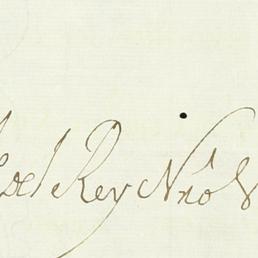 del Rey Nr̃o